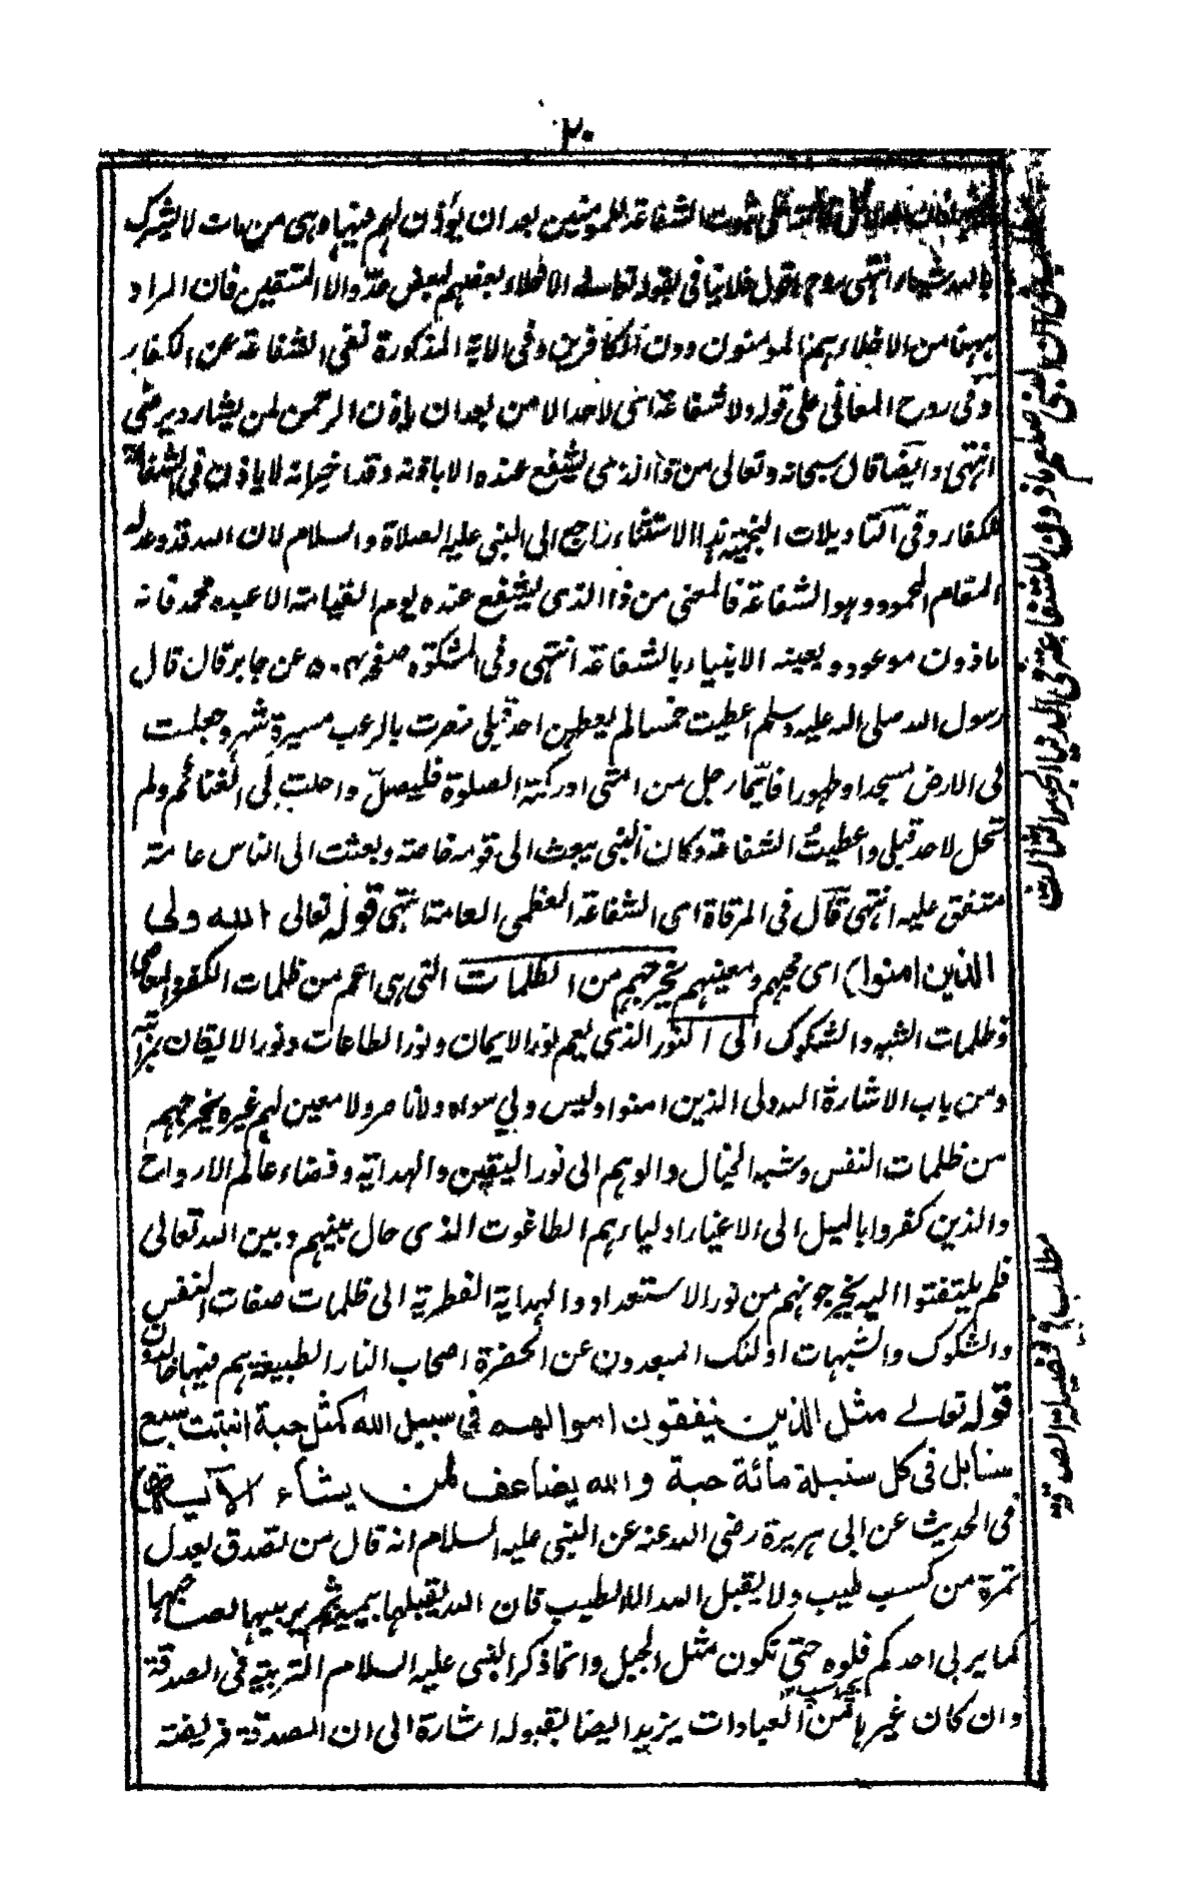 ٢٠
ثبوت الشفاعة للمومنين بعد ان يوذن لهم فيها وهى من مات لا يشرك
بالله شيئا انتهى روح اقول فلا ينافى لقوله تعالى الاخلاء بعضهم لبعض عدو الا المتقين فان المراد
ههنا من الاخلاء هم المومنون دون الكافرين وفى الاية المذكورة نفى الشفاعة عن الكفار
وفى روح المعانى على قوله ولا شفاعة اى لاحد الا من بعد ان ياذن الرحمن لمن يشاء ويرضى
انتهى وايضا قال سبحانه وتعالى من ذا الذى يشفع عنده الا باذنه وقد اخبر انه لا ياذن فى الشفاعة
للكفار وفى التاويلات النجمية هذا الاستثناء راجع الى النبى عليه الصلاة والسلام لان الله قد وعد له
المقام المحمود وهو الشفاعة فالمعنى من ذا الذى يشفع عنده يوم القيامة الا عبده محمد فانه
ماذون موعود ويعينه الانبياء بالشفاعة انتهى وفى المشكوة صفحه ٥٠٤ عن جابر قال قال
رسول الله صلى الله عليه وسلم اعطيت خمسا لم يعطهن احد قبلى نصرت بالرعب مسيرة شهر وجعلت
لى الارض مسجدا وطهورا فايّما رجل من امتى ادركته الصلوة فليصلّ واحلت لى الغنائم ولم
تحل لاحد قبلى واعطيتُ الشفاعة وكان النبى يبعث الى قومه خاصة وبعثت الى الناس عامة
متفق عليه انتهى قال فى المرقاة اى الشفاعة العظمى العامة انتهى قوله تعالى (الله ولى
الذين امنوا) اى محبهم ومعينهم يخرجهم من الظلمات التى هى اعم من ظلمات الكفر والمعاصى
وظلمات الشبه والشكوك الى النور الذى يعم نور الايمان ونور الطاعات ونور الايقان بمراتبه
ومن باب الاشارة الله ولى الذين امنوا وليس ولي سواه ولا ناصر ولا معين لهم غيره يخرجهم
من ظلمات النفس وشبه الخيال والوهم الى نور اليقين والهداية وفضاء عالم الارواح
والذين كفروا بالميل الى الاغيار اولياءهم الطاغوت الذى حال بينهم وبين الله تعالى
فلم يلتفتوا اليه يخرجونهم من نور الاستعداد والهداية الفطرية الى ظلمات صفات النفس
والشكوك والشبهات اولئك المبعدون عن الحضرة اصحاب النار الطبيعة هم فيها خالدون
قوله تعالے مثل الذين ينفقون اموالهم فى سبيل الله كمثل حبة انبتت سبع
سنابل فى كل سنبلة مائة حبة والله يضاعف لمن يشاء الآية
فى الحديث عن ابى هريرة رضى الله عنه عن النبى عليه السلام انه قال من تصدق بعدل
تمرة من كسب طيب ولا يقبل الله الا الطيب فان الله يقبلها بيمينه ثم يربيها لصاحبها
كما يربى احدكم فلوه حتى تكون مثل الجبل وانما ذكر النبى عليه السلام التربية فى الصدقة
وان كان غيرها من العبادات يزيد ايضا بقبوله اشارة الى ان الصدقة فريضة
ان النبى صلعم ماذون للشفاعة فى الدنيا
مطلب فى فضيلة الصدقة